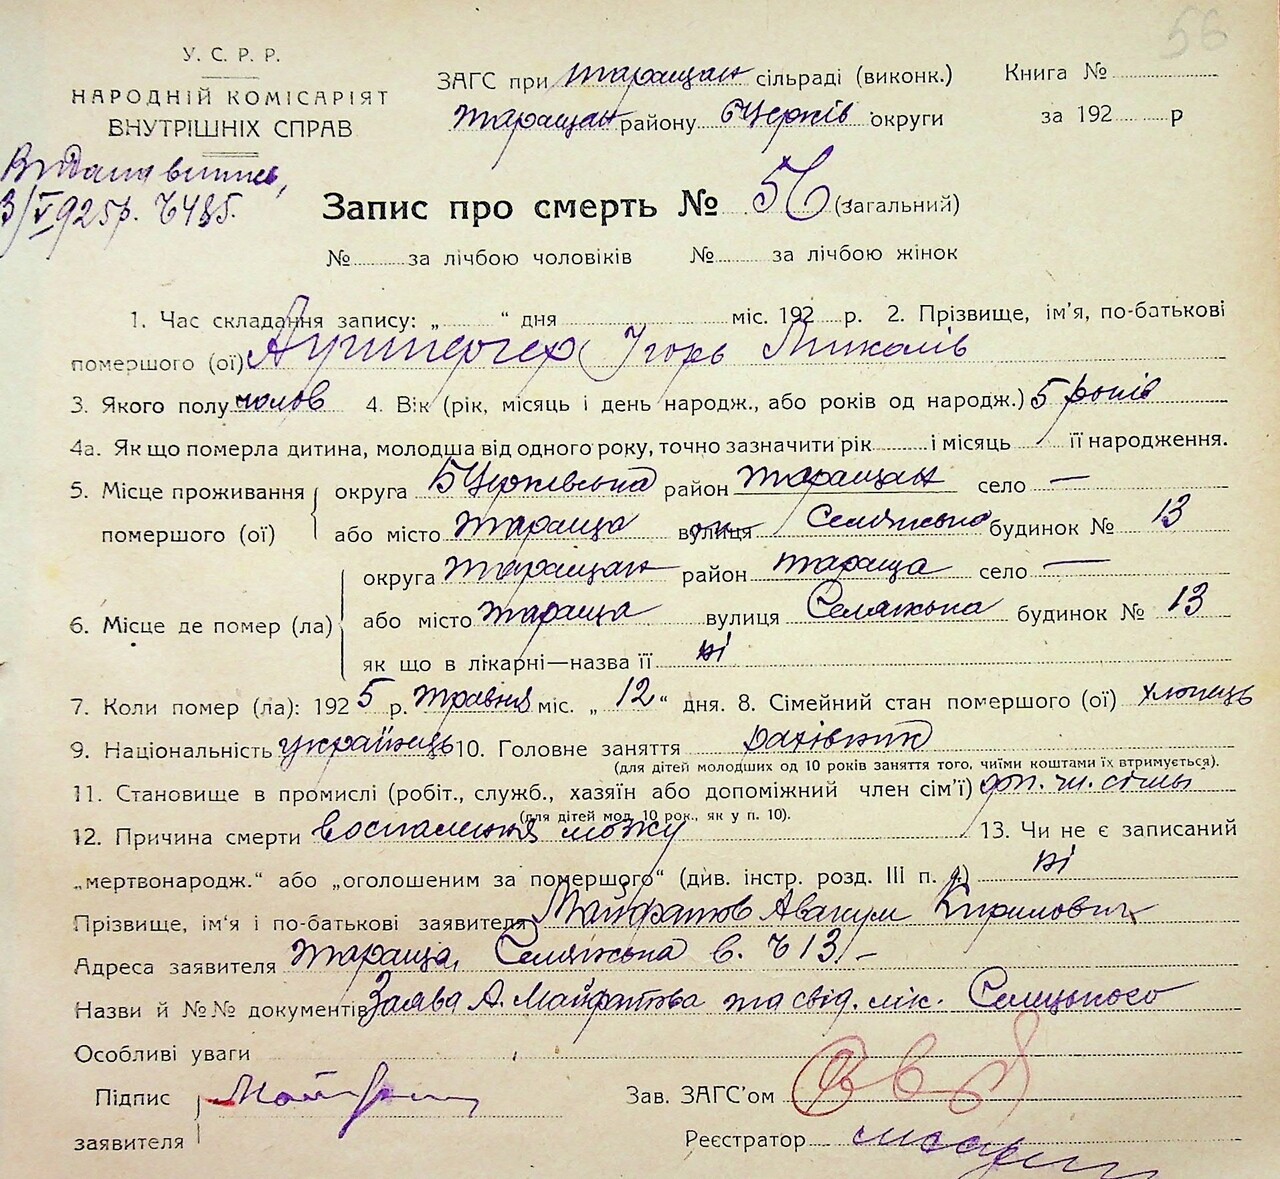 56
У. С. Р. Р.
НАРОДНІЙ КОМІСАРІЯТ
ВНУТРІШНІХ СПРАВ
ЗАГС при таращан сільраді (виконк.)
Книга №
таращан району БЦерків округи
за 192 р
Видана випись,
3/V 925р. Ч485.
Запис про смерть № 56 (загальний)
№ за лічбою чоловіків № за лічбою жінок
1. Час складання запису: „ “ дня міс. 192 р. 2. Прізвище, ім'я, по-батькові
помершого (ої) Ігорь Миколів
3. Якого полу чолов 4. Вік (рік, місяць і день народж., або років од народж.) 5 років
4а. Як що померла дитина, молодша від одного року, точно зазначити рік і місяць її народження.
5. Місце проживання помершого (ої) округа БЦерківська район таращан село —
або місто Тараща вулиця Селянська будинок № 13
6. Місце де помер (ла) округа Таращан район тараща село —
або місто Тараща вулиця Селянська будинок № 13
як що в лікарні—назва її ні
7. Коли помер (ла): 1925 р. травня міс. „12“ дня. 8. Сімейний стан помершого (ої) хлопець
9. Національність українець 10. Головне заняття рахівник
(для дітей молодших од 10 років заняття того, чиїми коштами їх втримується).
11. Становище в промислі (робіт., служб., хазяїн або допоміжний член сім'ї) доп. чл. сімьі
(для дітей мод. 10 рок., як у п. 10).
12. Причина смерти воспалення мозку 13. Чи не є записаний
„мертвонародж.“ або „оголошеним за помершого“ (див. інстр. розд. III п. ) ні
Прізвище, ім'я і по-батькові заявителя Майфатов Авакум Кирилович
Адреса заявителя Тараща, Селянська в. Ч 13/-
Назви й №№ документів Заява А. Майфатова та свід. лік. Селицького
Особливі уваги
Підпис
заявителя
Зав. ЗАГС'ом
Реєстратор